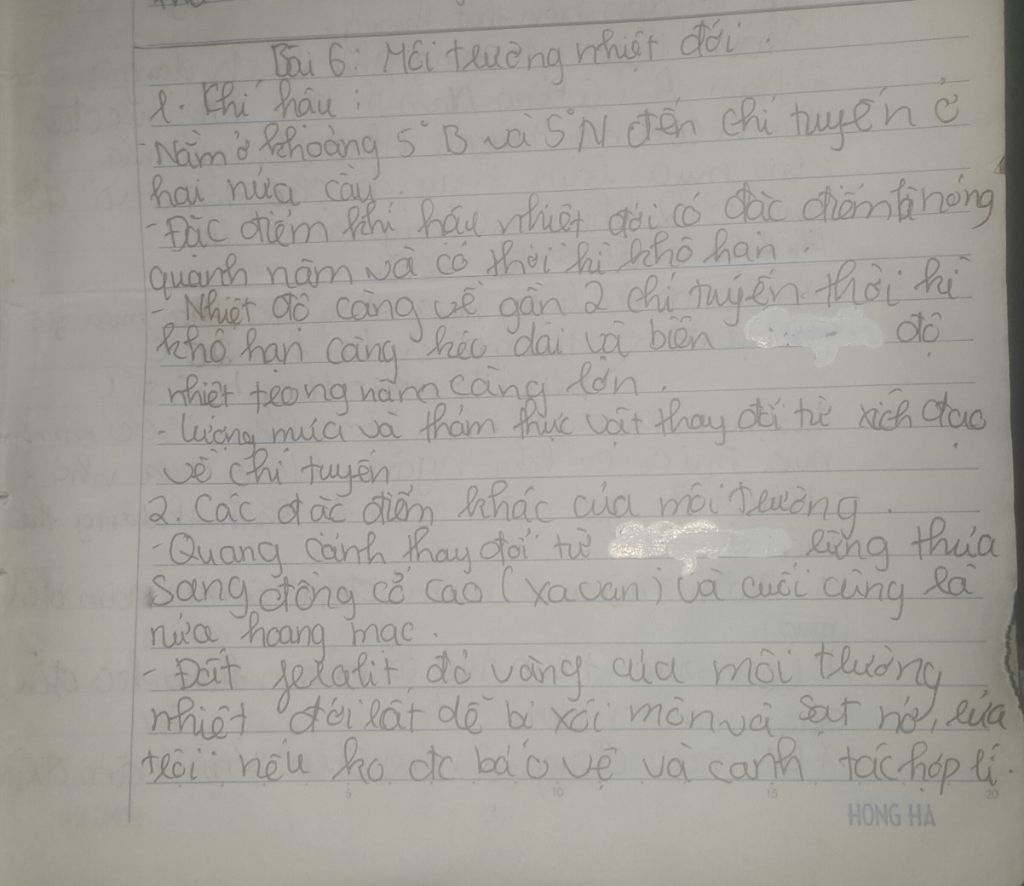 Bài 6: Môi trường nhiệt đới.
1. Khí hậu:
- Nằm ở khoảng 5°B và 5°N đến chí tuyến ở
hai nửa cầu.
- Đặc điểm khí hậu nhiệt đới có đặc điểm là nóng
quanh năm và có thời kì khô hạn.
- Nhiệt độ càng về gần 2 chí tuyến thời kì
khô hạn càng kéo dài và biên độ
nhiệt trong năm càng lớn.
- Lượng mưa và thảm thực vật thay đổi từ xích đạo
về chí tuyến
2. Các đặc điểm khác của môi trường.
- Quang cảnh thay đổi từ rừng thưa
sang đồng cỏ cao (xavan) và cuối cùng là
nửa hoang mạc.
- Đất feralit đỏ vàng của môi trường
nhiệt đới rất dễ bị xói mòn và sạt nở, rửa
trôi nếu ko đc bảo vệ và canh tác hợp lí.
5 10 15 20
HONG HA